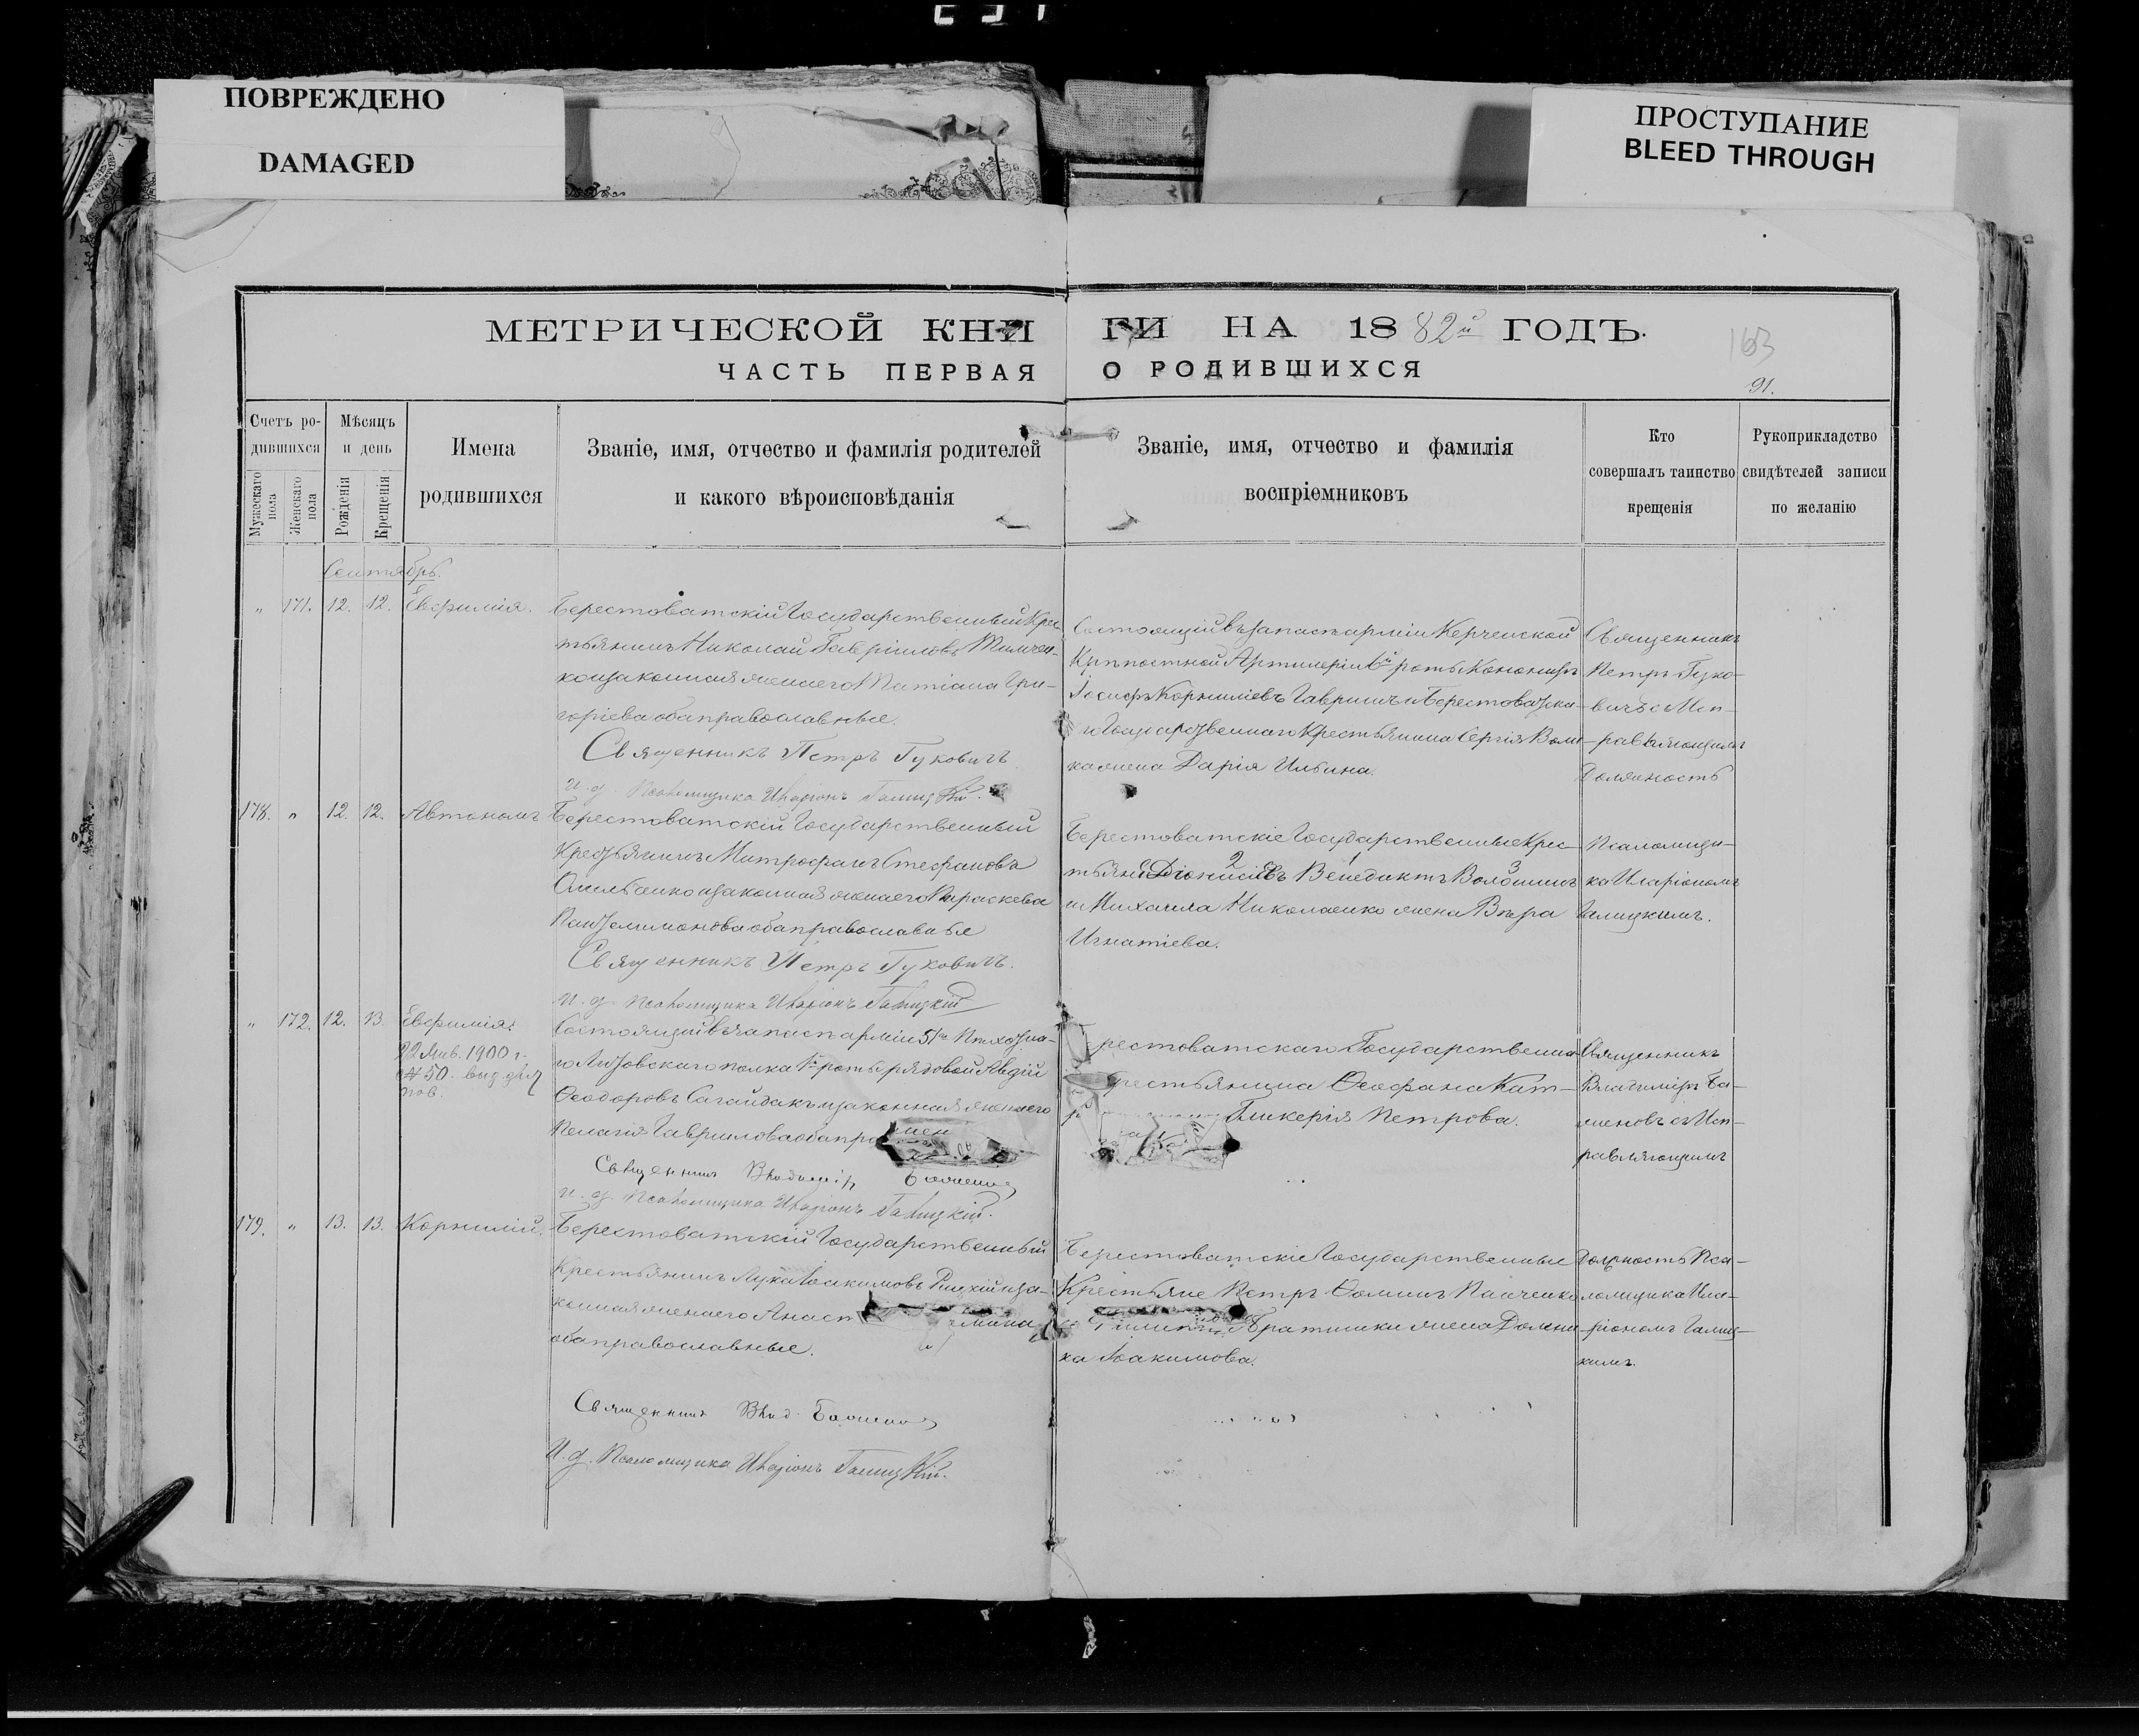 ПОВРЕЖДЕНО
DAMAGED
ПРОСТУПАНИЕ
BLEED THROUGH
МЕТРИЧЕСКОЙ КНИГИ НА 1882й ГОДЪ.
163
ЧАСТЬ ПЕРВАЯ О РОДИВШИХСЯ
91.
Счетъ родившихся
Мужескаго пола
Женскаго пола
Мѣсяцъ и день
Рожденія
Крещенія
Имена родившихся
Званіе, имя, отчество и фамилія родителей
и какого вѣроисповѣданія
Званіе, имя, отчество и фамилія
воспріемниковъ
Кто
совершалъ таинство
крещенія
Рукоприкладство
свидѣтелей записи
по желанію
Сентябрь.
" 171. 12. 12. Евфимія.
Берестоватскій Государственный Крес
тьянинъ Николай Гавріиловъ
и законная жена его Татіана Гри-
горіева оба православные.
Священникъ Петръ Гуковичъ
и. д. Псаломщика Иларіонъ Галицкій.
Состоящій въ запасѣ арміи Керченской
Крѣпостной Артилеріи роты Канониръ
Іосифъ Корниліевъ Гавришъ и Берестоватска-
го Государственнаго Крестьянина Сергія
жена Дарія Ильина.
Священникъ
Петръ Гуко-
вичъ с Исп-
равляющимъ
Должность
178. " 12. 12. Автономъ
Берестоватскій Государственный
Крестьянинъ Митрофанъ Стефановъ
Омельченко и законная жена его Параскева
Пантелимонова оба православные
Священникъ Петръ Гуковичъ.
и. д. Псаломщика Иларіонъ Галицкій
Берестоватскіе Государственные Крес-
тьяне Діонисіевъ 2 Венедиктъ 1 3
и Михаила Николаенко жена Вѣра
Игнатіева.
Псаломщи-
ка Иларіономъ
Галицкимъ.
" 172. 12. 13. Евфимія.
22 Янв. 1900 г.
№ 50. выд. для
пов.
Состоящій въ запасѣ арміи 51го Пѣхотна-
го Литовскаго полка роты рядовой Авдій
Ѳеодоровъ Сагайдакъ и законная жена его
Пелагія Гавриилова оба пра
Священникъ Владиміръ Баженовъ
и. д. Псаломщика Иларіонъ Галицкій.
рестоватскаго Государственна
рестьянина Ѳеофана
Гликерія Петрова.
Священникъ
Владиміръ Ба-
женовъ с Исп-
равляющимъ
179. " 13. 13. Корнилій.
Берестоватскій Государственный
Крестьянинъ Лука Іоакимовъ и за-
конная жена его Анаст
оба православные.
Священникъ Влад. Баженовъ
И. д. Псаломщика Иларіонъ Галицкій.
Берестоватскіе Государственные
Крестьяне Петръ Ѳоминъ Панченко
жена Домни
ка Іоакимова.
Должность Пса-
ломщика Ила-
ріономъ Галиц-
кимъ.